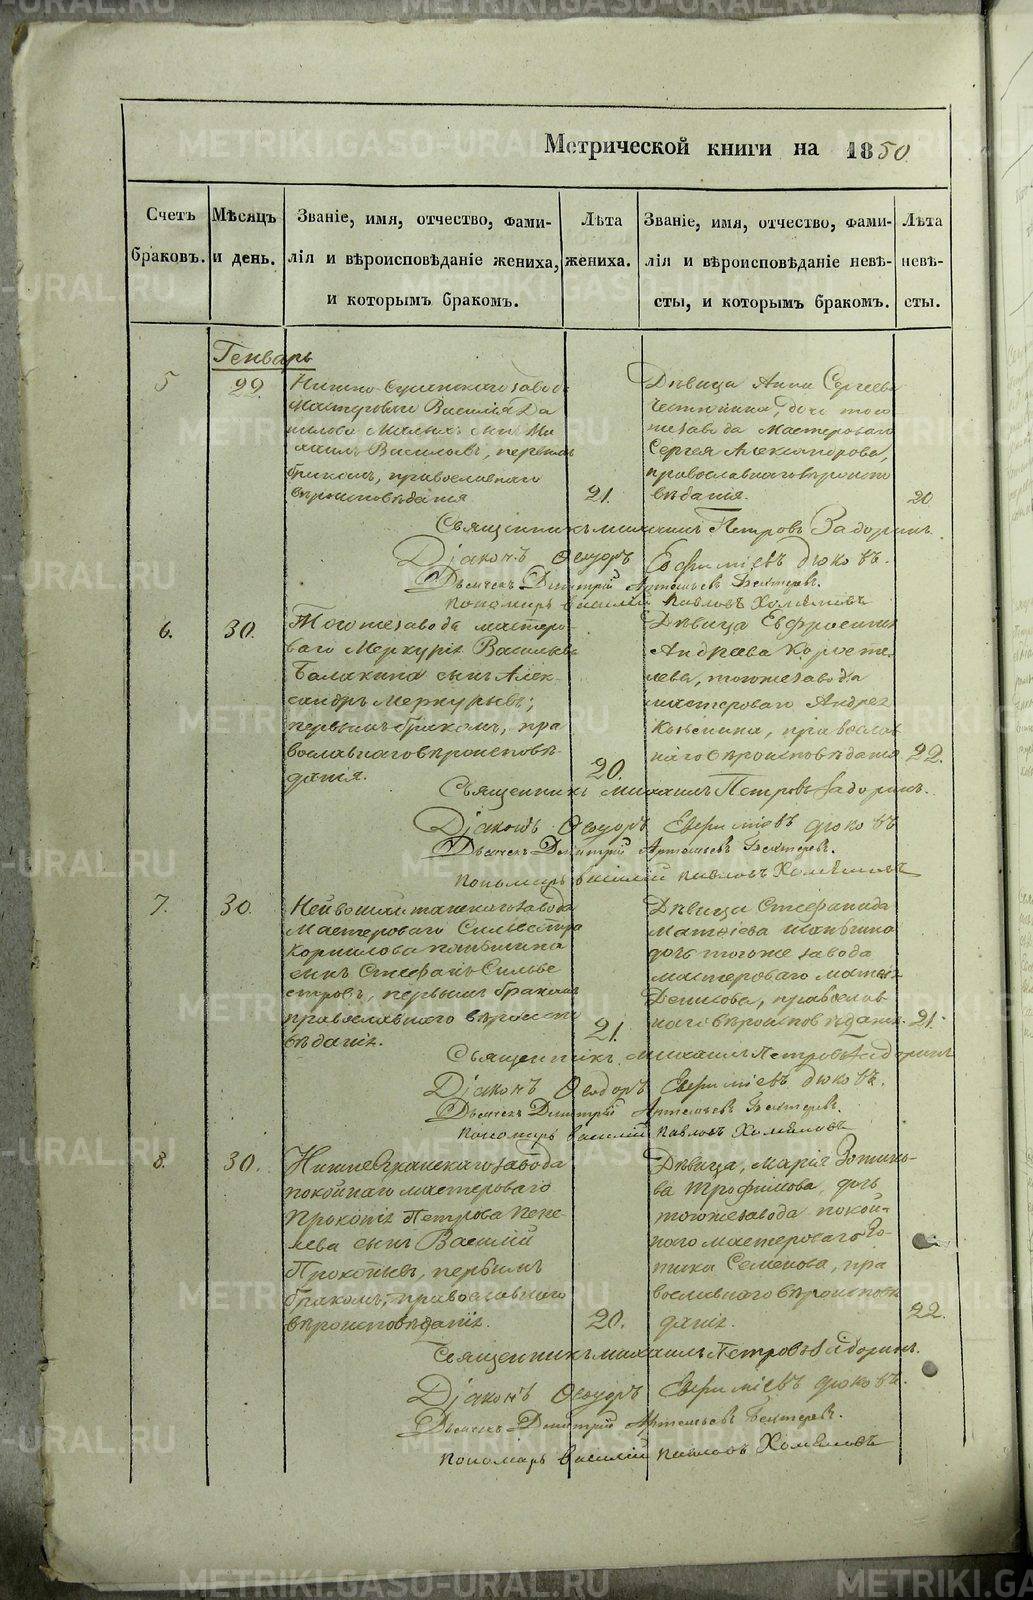 Метрической книги на 1850
Счетъ браковъ.
Мѣсяцъ и день.
Званіе, имя, отчество, фами-
лія и вѣроисповѣданіе жениха,
и которымъ бракомъ.
Лѣта жениха.
Званіе, имя, отчество, фами-
лія и вѣроисповѣданіе невѣ-
сты, и которымъ бракомъ.
Лѣта невѣ-
сты.
Генварь
5
22.
завода
Мастероваго Василія Да
нилова Малыхъ сынъ Ми
хаилъ Васильевъ, первымъ
бракомъ, православнаго
вѣроисповѣданія
21.
Дѣвица Анна Сергеева
дочь того
же завода Мастероваго
Сергея Александрова,
православнаго вѣроиспо
вѣданія.
20
Священникъ Михаилъ Петровъ Задоринъ.
Діаконъ Ѳеодоръ Евфиміевъ Дюковъ.
Дьячекъ Димитрій Артемьевъ Бехтеревъ.
Пономарь Василій Павловъ Хомяковъ
6.
30.
Тогоже завода мастеро
ваго Меркурія Васильева
Балакина сынъ Алек-
сандръ Меркурьевъ,
первымъ бракомъ, пра
вославнаго вѣроисповѣ
данія.
20.
Дѣвица Евфросинія
Андреева Коросте
лева, тогоже завода
мастероваго Андрея
православ
наго вѣроисповѣданія
22.
Священникъ Михаилъ Петровъ Задоринъ.
Діаконъ Ѳеодоръ Евфиміевъ Дюковъ
Дьячекъ Димитрій Артемьевъ Бехтеревъ.
Пономарь Василій Павловъ Хомяковъ
7.
30.
Нейвошайтанскаго завода
Мастероваго Сильвестра
Корнилова
сынъ Стефанъ Сильве
стровъ, первымъ бракомъ
православнаго вѣроиспо
вѣданія.
21.
Дѣвица Стефанида
Матвіева
дочь тогоже завода
мастероваго Матвѣя
Денисова, православ
наго вѣроисповѣданія.
21.
Священникъ Михаилъ Петровъ Задоринъ
Діаконъ Ѳеодоръ Евфиміевъ Дюковъ.
Дьячекъ Димитрій Артемьевъ Бехтеревъ.
Пономарь Василій Павловъ Хомяковъ
8.
30.
завода
покойнаго мастероваго
Прокопія Петрова Пене
лева сынъ Василій
Прокопьевъ, первымъ
бракомъ, православнаго
вѣроисповѣданія.
20.
Дѣвица, Марія Зотико-
ва Трофимова, дочь
тогоже завода покой-
наго мастероваго Зо-
тика Семенова, пра
вославнаго вѣроисповѣ
данія.
22.
Священникъ Михаилъ Петровъ Задоринъ.
Діаконъ Ѳеодоръ Евфиміевъ Дюковъ.
Дьячекъ Димитрій Артемьевъ Бехтеревъ.
Пономарь Василій Павловъ Хомяковъ
METRIKI.GASO-URAL.RU